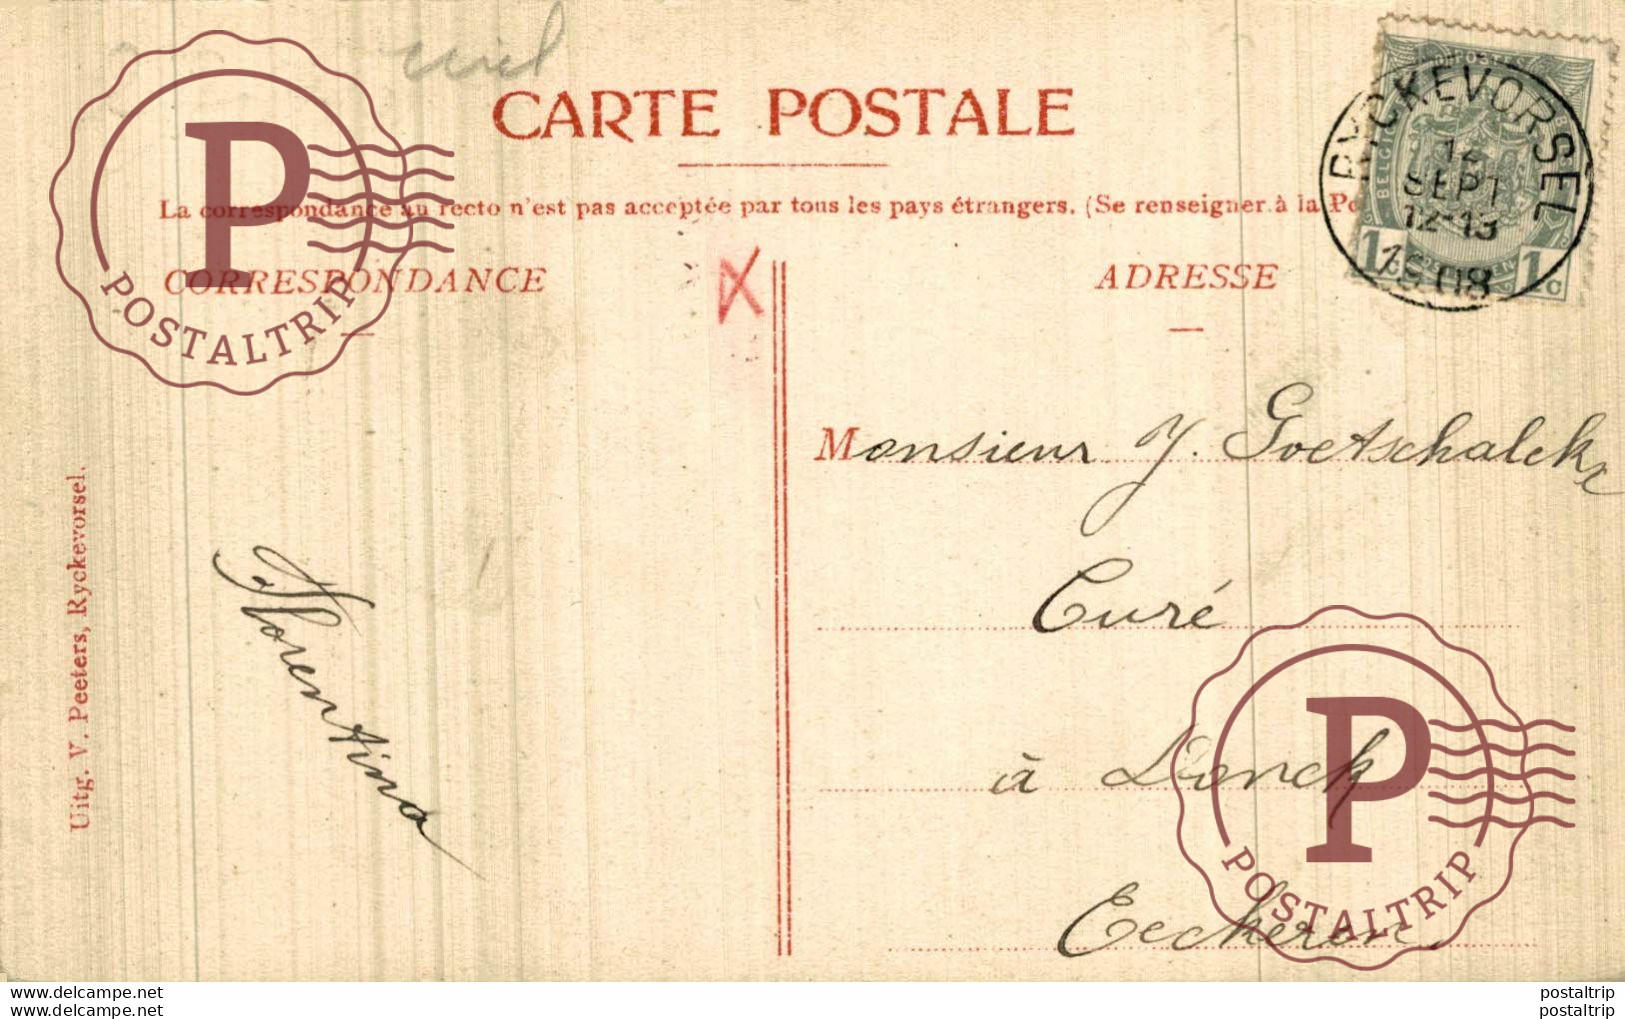 CARTE POSTALE
La correspondance au recto n'est pas acceptée par tous les pays étrangers. (Se renseigner à la Po
CORRESPONDANCE
ADRESSE
RYCKEVORSEL
12
SEPT
12-13
1908
BELGIQUE
1c
1c
Monsieur J. Goetschalckx
Curé
à Donck
Eeckeren
Florentina
Uitg. V. Peeters, Ryckevorsel.
P
POSTALTRIP
P
POSTALTRIP
www.delcampe.net
www.delcampe.net
postaltrip
postaltrip